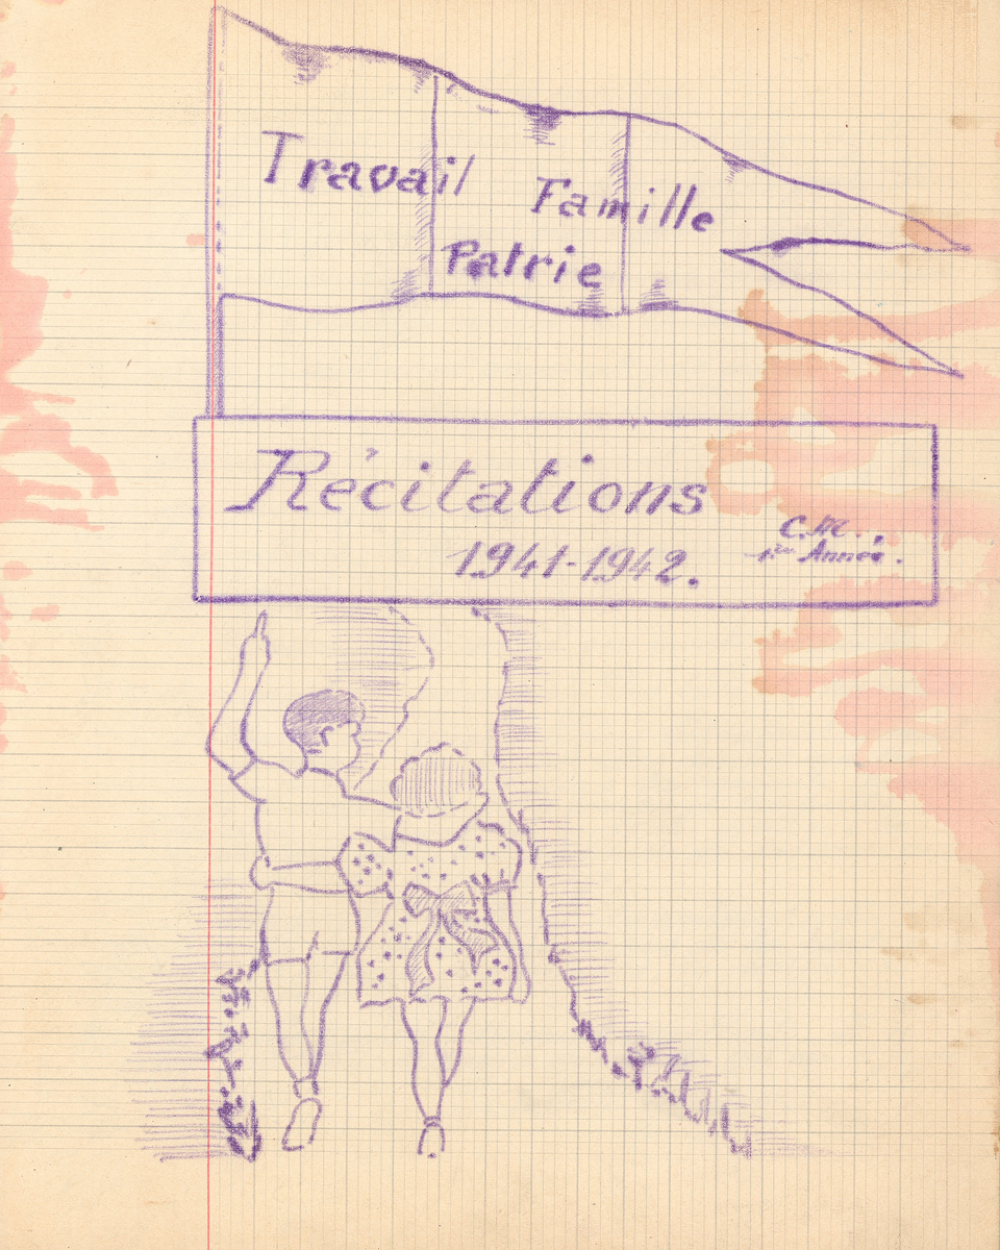 Travail
Famille
Patrie
Récitations
C.M.
1ère Année.
1941-1942.